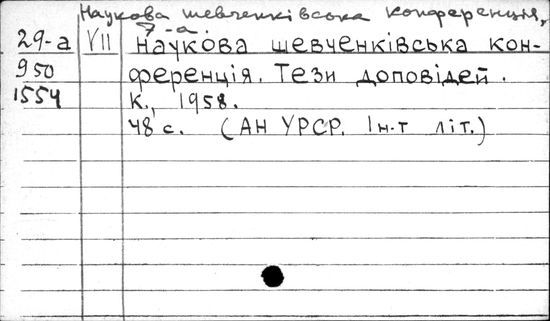 Наукова шевченківська конференція,
7-а
29-а VII Наукова шевченківська кон-
950 ференція. Тези доповідей.
1554 К., 1958.
48 с. (АН УРСР. Ін-т літ.)